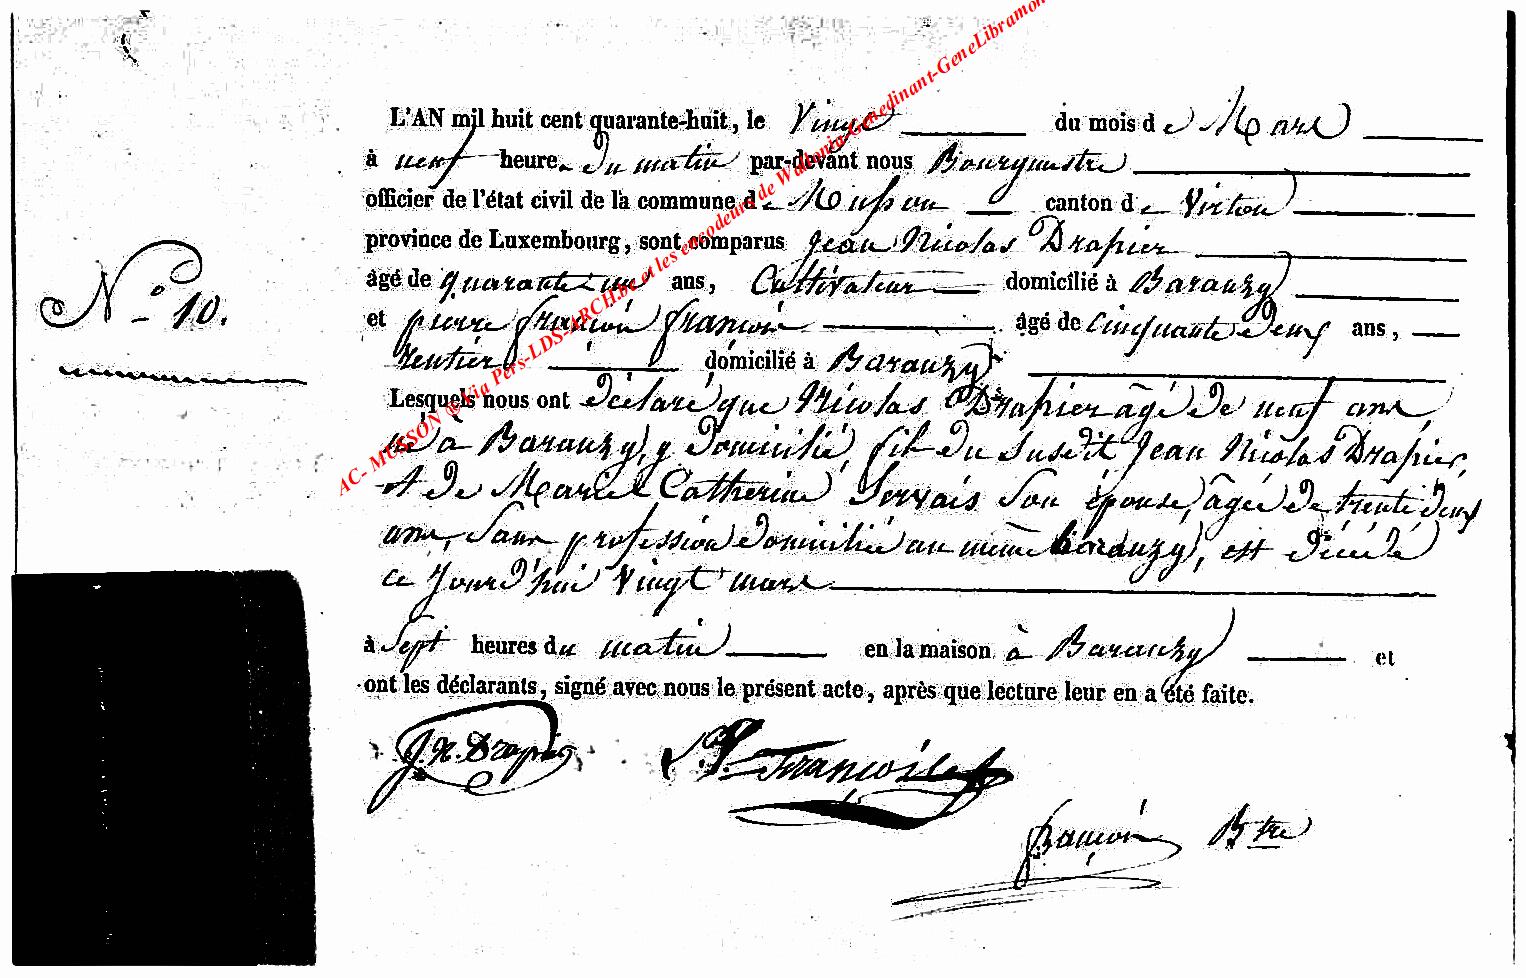 L'AN mil huit cent quarante-huit, le Vingt du mois de Mars
à neuf heure du matin par-devant nous Bourgmestre
officier de l'état civil de la commune de Musson canton de Virton
province de Luxembourg, sont comparus Jean Nicolas Drapier
âgé de quarante un ans, Cultivateur domicilié à Baranzy
et pierre françois françois âgé de cinquante deux ans,
rentier domicilié à Baranzy
Lesquels nous ont déclaré que Nicolas Drapier âgé de neuf ans
né à Baranzy, y domicilié, fils du susdit Jean Nicolas Drapier,
et de Marie Catherine Servais son épouse, âgée de trente deux
ans, sans profession domiciliée au même baranzy, est décédé
ce jourd'hui vingt mars
à sept heures du matin en la maison à Baranzy et
ont les déclarants, signé avec nous le présent acte, après que lecture leur en a été faite.
N° 10.
J. N. Drapier
P. François
françois Btre
AC- MUSSON @ via Pers-LDS-ARCH.be et les encodeurs de Wallonia-Genedinant-GeneLibramon